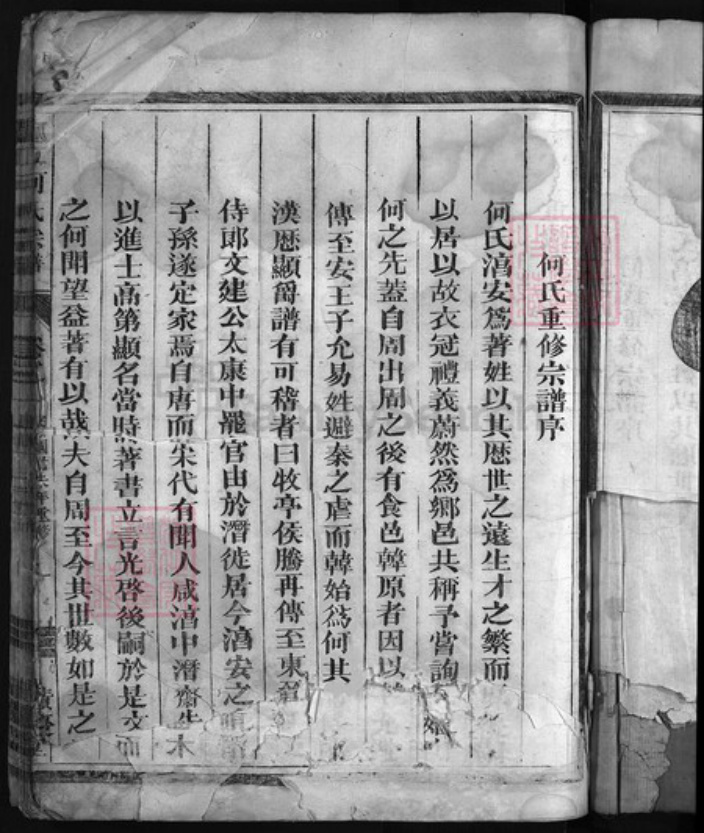 何氏重修宗譜序
何氏淯安爲著姓以其歷世之遠生才之繁而
以居以故衣冠禮義蔚然爲鄉邑共稱予嘗詢
何之先蓋自周出周之後有食邑韓原者因以
傳至安王子允易姓避秦之虐而韓始爲何其
漢歷顯爵譜有可稽者曰牧亭侯騰再傳至東
侍郎文建公太康中罷官由於潛徙居今淯安之
子孫遂定家焉自唐而宋代有聞人咸淯中潛齋先
以進士高第顯名當時著書立言光啓後嗣於是文而
之何聞望益著有以哉夫自周至今其世數如是之
何氏宗譜